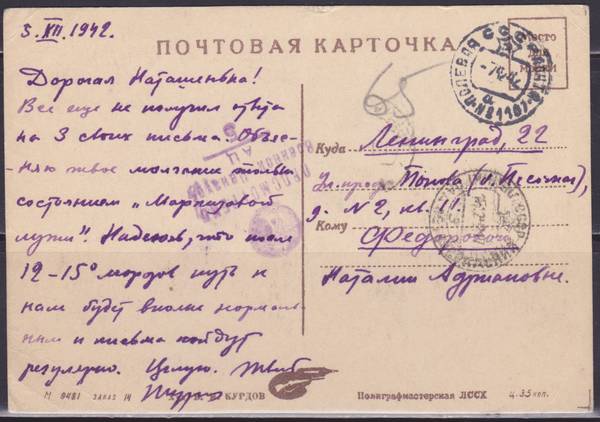 3.XII.1942.
ПОЧТОВАЯ КАРТОЧКА
Место
для
марки
Дорогая Наташенька!
Все еще не получил ответа
на 3 своих письма. Объяс-
няю твое молчание только
состоянием „Маркизовой
лужи". Надеюсь, что после
12-15° морозов путь к
нам будет вполне нормаль-
ным и письма пойдут
регулярно. Целую. Твой
Куда Ленинград, 22
ул. проф. Попова (б. Песочная),
д. №2, кв. 11.
Кому Федоровой
Наталии Адриановне.
ПОЛЕВАЯ
СССР
№1187
ПРОСМОТРЕНО
Военной
М 9481 ЗАКАЗ 14
КУРДОВ
Полиграфмастерская ЛССХ
Ц. 35 коп.